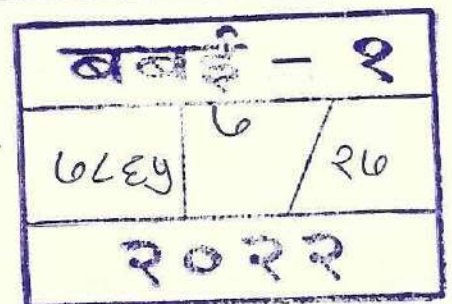 बबई - १
७८६५ ७ / २७
२०२२